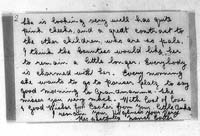 She is looking very well has quite
pink cheeks, and a great contrast to
the other children who are so pale.
I think the Counties would like her
to remain a little longer. Everybody
is charmed with her. Every morning
she wants to go to Parker place, to say
good morning to Grandmamma. She
misses you very much. With lots of love
& good wishes for Easter from your little
remain